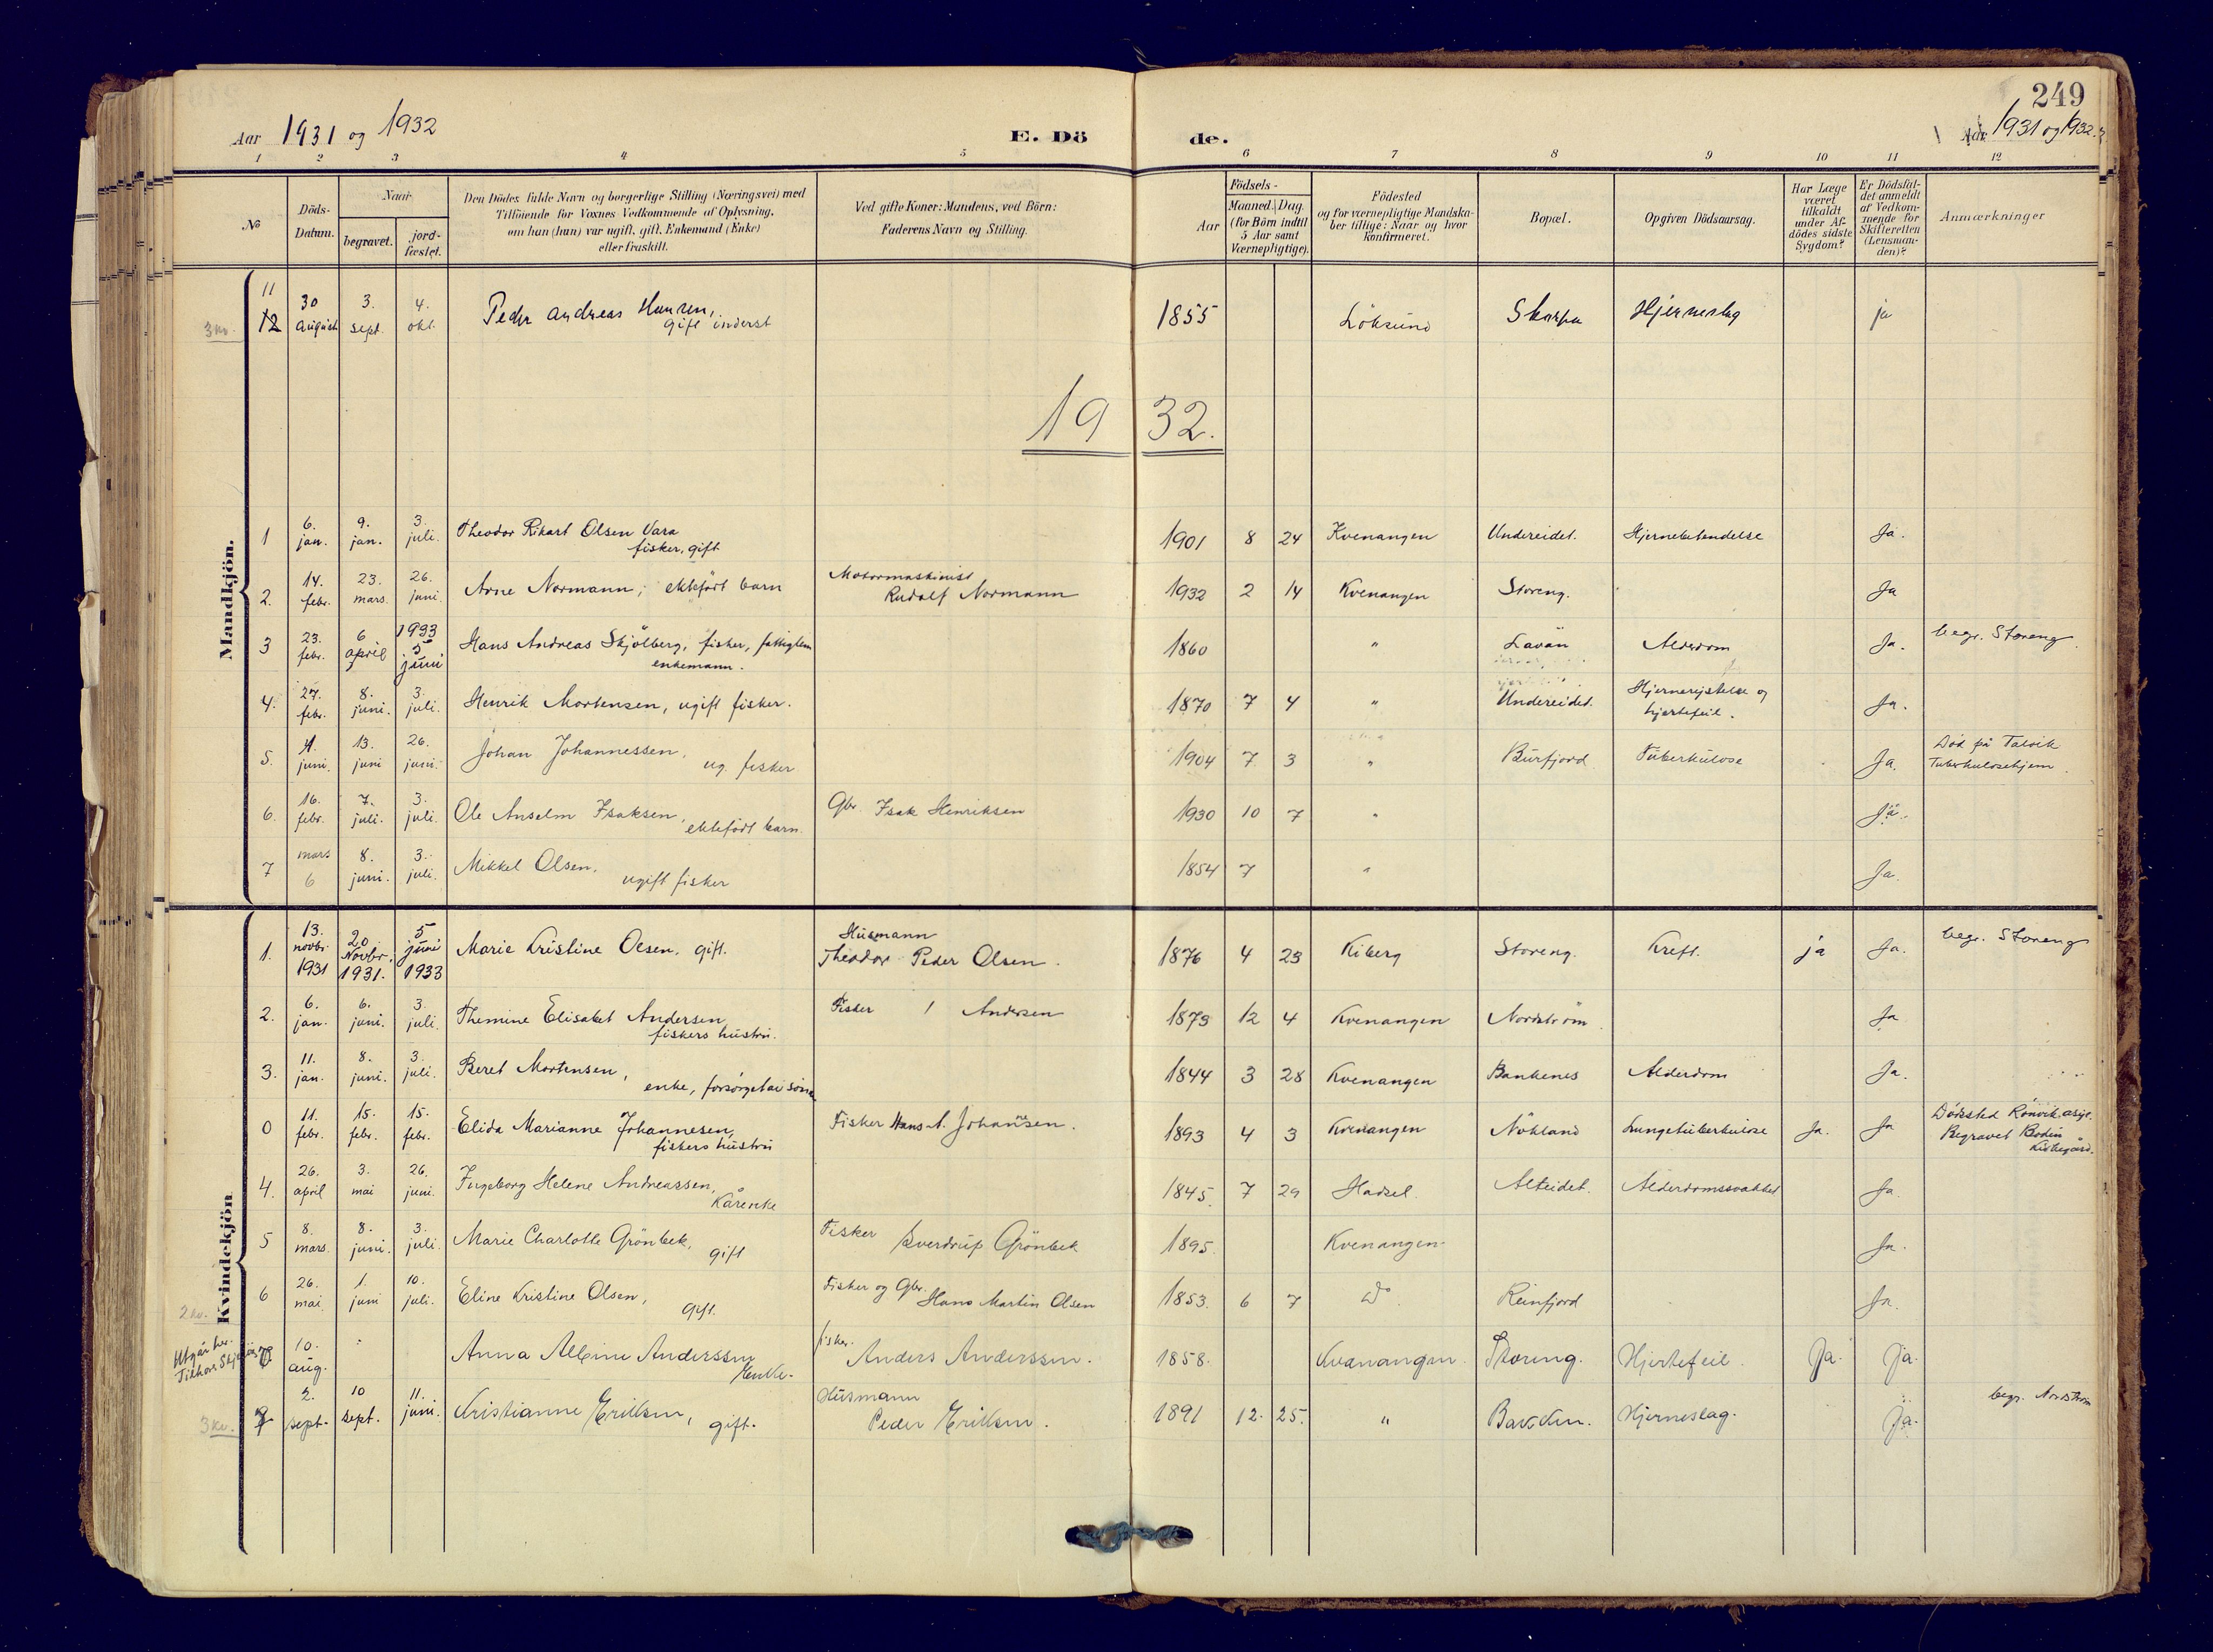 249
Aar 1931 og 1932
E. Dö de.
Aar 1931 og 1932.
1 2 3 4 5 6 7 8 9 10 11 12
No
Döds-Datum.
Naar
begravet.
jord-fæstet.
Den Dödes fulde Navn og borgerlige Stilling (Næringsvei) med
Tilföiende for Voxnes Vedkommende af Oplysning,
om han (hun) var ugift, gift, Enkemand (Enke)
eller fraskilt.
Ved gifte Koner: Mandens, ved Börn:
Faderens Navn og Stilling.
Födsels-
Aar
Maaned. Dag.
(for Börn indtil
5 Aar samt
Værnepligtige).
Födested
og for værnepligtige Mandska-
ber tillige: Naar og hvor
Konfirmeret.
Bopæl.
Opgiven Dödsaarsag.
Har Læge
været
tilkaldt
under Af-
dödes sidste
Sygdom?
Er Dödsfal-
det anmeldt
af Vedkom-
mende for
Skifteretten
(Lensman-
den)?
Anmærkninger
Mandkjön.
3 kv. 11 12 30 august 3. sept. 4. okt. Peder Andreas Hansen, gift inderst 1855 Löksund Skarpa Hjerneslag ja
1932.
1 6. jan. 9. jan. 3. juli. Theodor Rikart Olsen Vara fisker, gift 1901 8 24 Kvenangen Undereidet. Hjernebetendelse Ja.
2. 14. febr. 23. mars 26. juni. Arne Normann, ektefödt barn Motormaskinist Rudolf Normann 1932 2 14 Kvenangen Storeng. Ja
3 23. febr. 6 april 1933 5 juni Hans Andreas Skjölberg, fisker, fattiglem enkemann. 1860 " Lavan Alderdom Ja. begr. Storeng.
4. 27. febr. 8. juni. 3. juli. Henrik Mortensen, ugift fisker. 1870 7 4 " Undereidet. Hjernerystelse og hjertefeil. Ja.
5. 4. juni. 13. juni 26. juni. Johan Johannessen, ug. fisker 1904 7 3 " Burfjord Tuberkulose Ja. Död på Talvik Tuberkulosehjem.
6. 16. febr. 7. juli. 3. juli. Ole Anselm Isaksen, ektefödt barn. Gbr. Isak Henriksen 1930 10 7 " Ja.
7 mars 6 8. juni. 3. juli. Mikkel Olsen, ugift fisker 1854 7 " Ja.
Kvindekjön
1. 13. novbr. 1931 20 Novbr. 1931. 5 juni 1933 Marie Kristine Olsen, gift. Husmann Theodor Peder Olsen. 1876 4 23 Kiberg Storeng. Kreft. ja Ja. begr. Storeng
2. 6. jan. 6. juni. 3. juli. Themine Elisabet Andersen fiskers hustru. Fisker Andersen 1873 12 4 Kvenangen Nordström Ja
3. 11. jan. 8. juni. 3. juli. Beret Mortensen, enke, forsörget av sönn 1844 3 28 Kvenangen Bankenes Alderdom Ja.
0 11. febr. 15. febr. 15. febr. Elida Marianne Johannesen, fiskers hustru Fisker Hans A. Johannsen. 1893 4 3 Kvenangen Nökland Lungetuberkulose Ja. Ja Dödssted Rönvik asyl. Begravet Bodin Kirkegård.
4. 26. april 3. mai 26. juni. Ingeborg Helene Andreassen, Kårenke 1845. 7 29 Hadsel. Alteidet. Alderdomssvakhet Ja.
5 8. mars. 8. juni. 3. juli. Marie Charlotte Grönbek, gift Fisker Sverdrup Grönbek 1895. Kvenangen. Ja.
2 kv. 6 26. mai. 1. juni 10. juli. Eline Kristine Olsen, gift. Fisker og Gbr. Hans Martin Olsen 1853. 6 7 Do Reinfjord Ja.
Utgår her. Tilhør 7 10. aug. Anna Albine Anderssen Enke. fisker. Anders Anderssen. 1858. Kvænangen. Storeng. Hjertefeil. Ja. Ja.
3 kv. 7 2. sept. 10 sept. 11. juni. Kristianne Eriksen, gift. Husmann Peder Eriksen. 1891 12. 25. " Hjerneslag. Ja. begr. Nordström